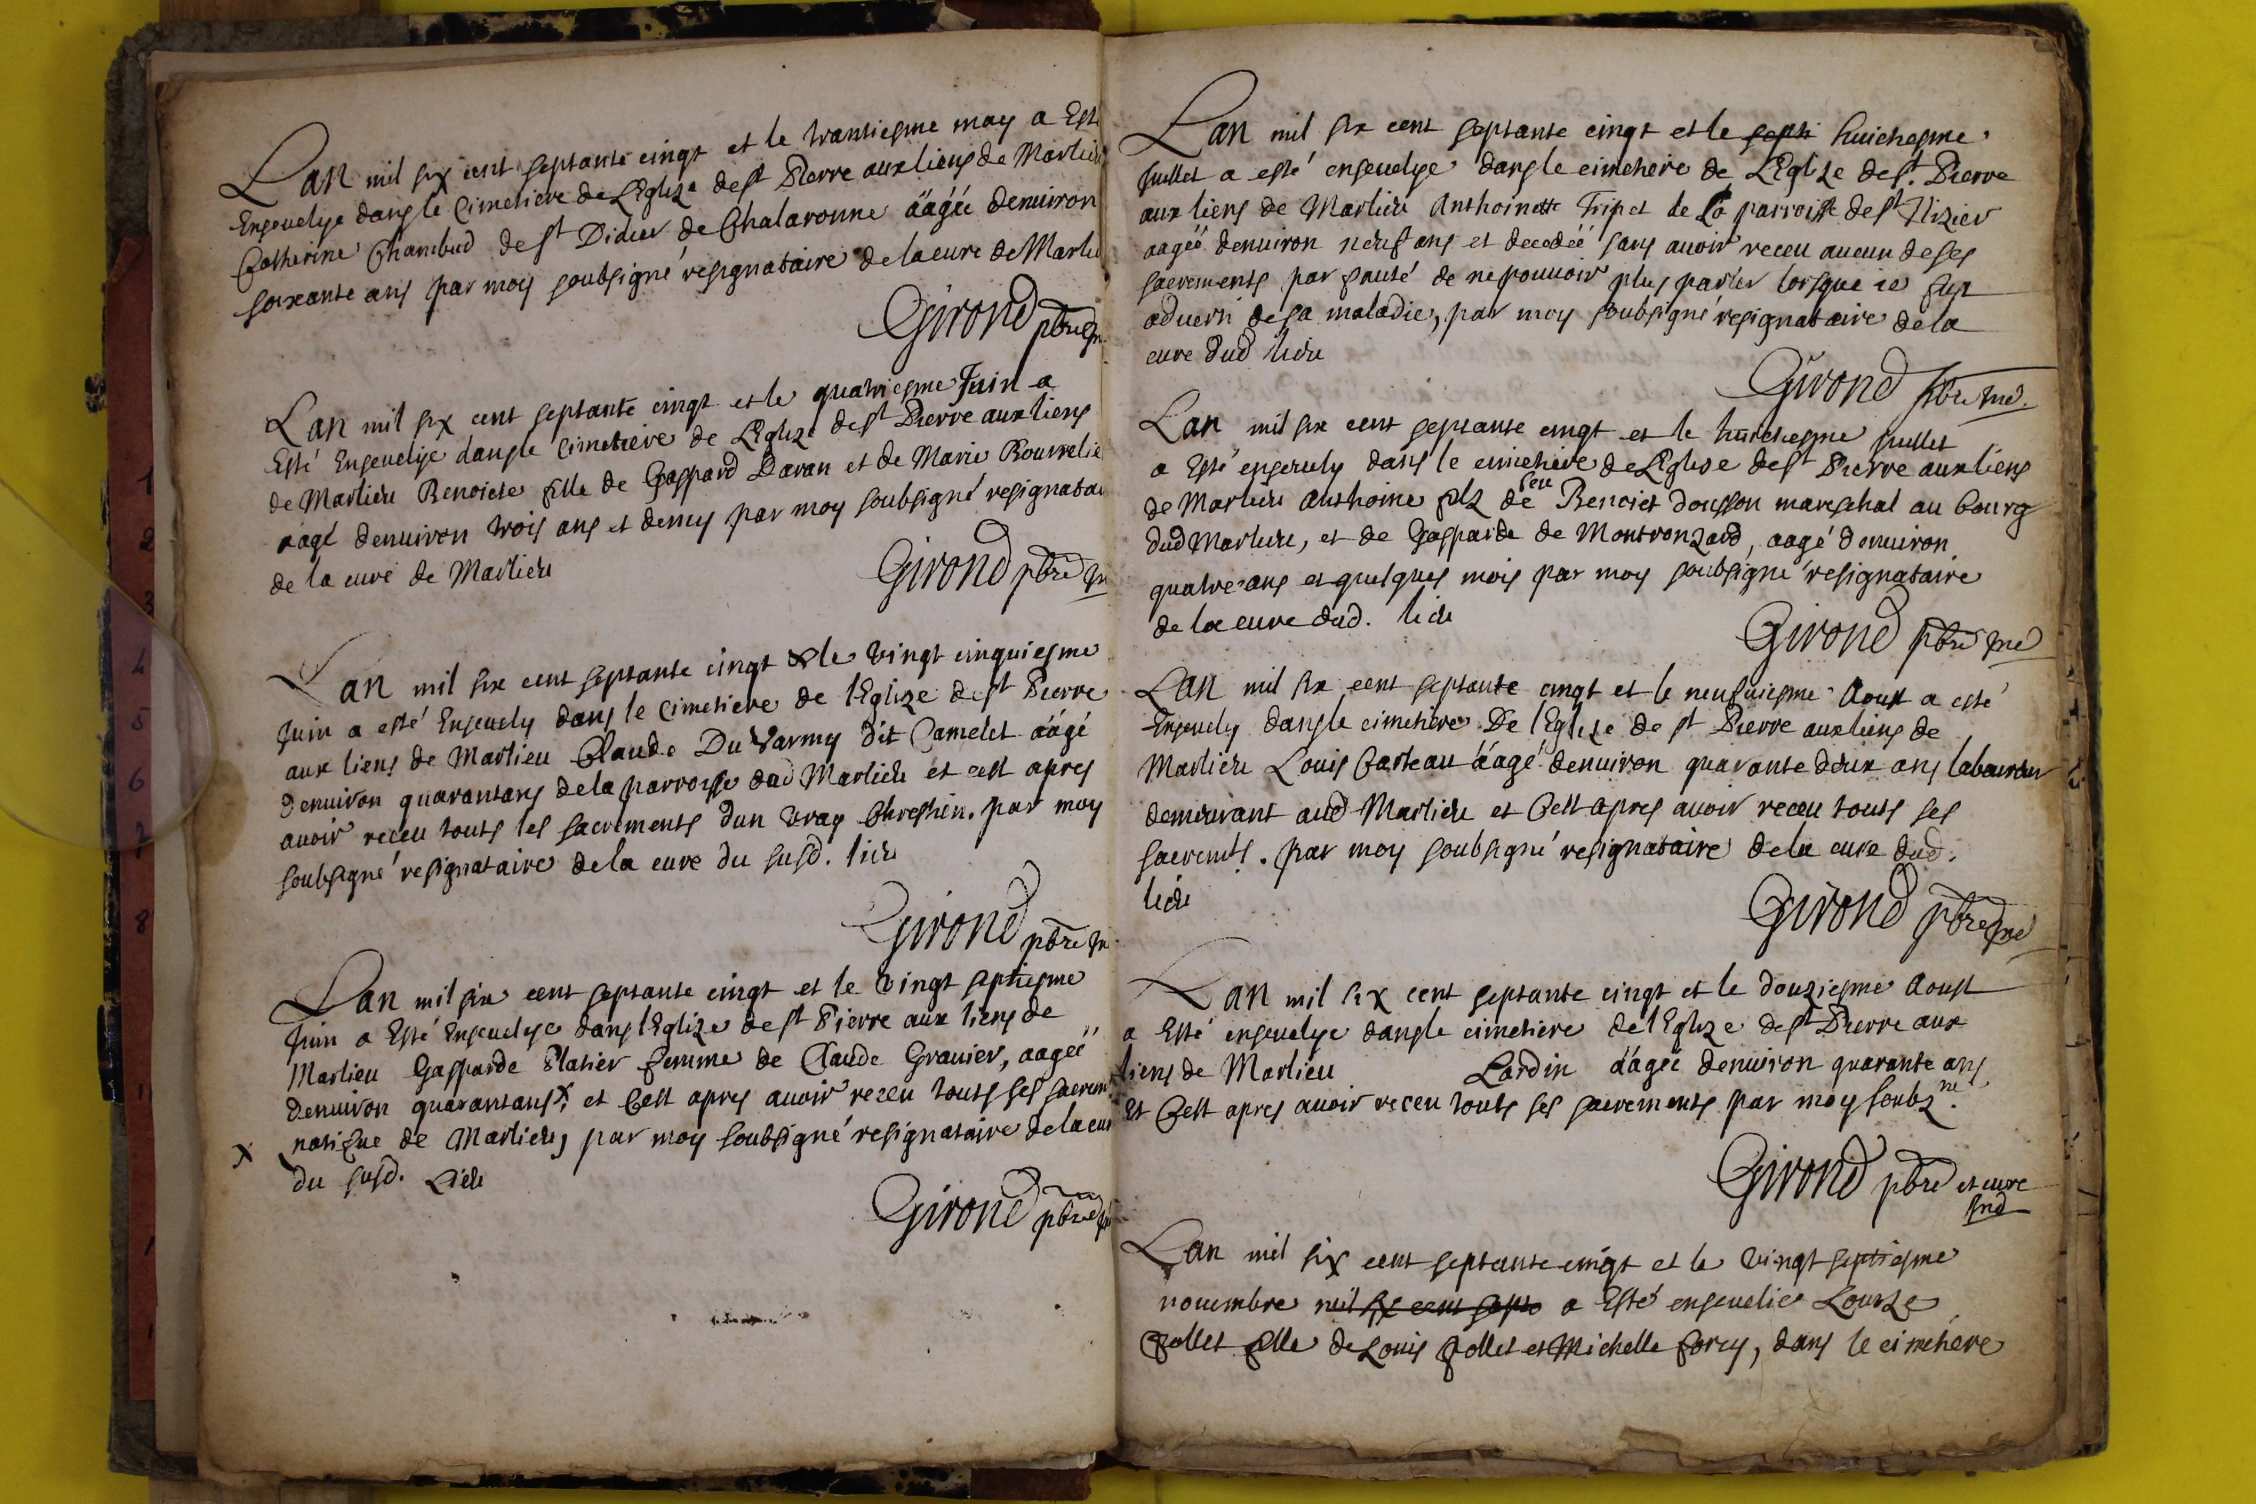 Lan mil six cent septante cinqt et le trantiesme may a Esté
Ensevelye dans le Cimetiere de LEglize de st Pierre aux liens de Marlieu
Catherine Chambud de st Didier de Chalaronne äagée denuiron
soixante ans par moy soubsigné resignataire de la cure de Marlieu
Girond pbre
Lan mil six cent septante cinqt et le quatriesme Juin a
Esté Ensevelye dans le Cimetiere de LEglize de st Pierre aux liens
de Marlieu Benoicte fille de Gaspard Davan et de Marie Bourrelie
aagé denuiron trois ans et demy par moy soubsigné resignatai
de la cure de Marlieu
Girond pbre
Lan mil six cent septante cinqt & le vingt cinquiesme
Juin a esté Ensevely dans le Cimetiere de lEglize de st Pierre
aux liens de Marlieu Claude Du Varmy dit Camelet äagé
denuiron quarantans de la parroisse dud Marlieu et cest apres
auoir receu touts les sacrements dun vray Chrestien. par moy
soubsigné resignataire de la cure du susd. lieu
Girond pbre
Lan mil six cent septante cinqt et le vingt septiesme
Juin a Esté Ensevelye dans lEglize de st Pierre aux liens de
Marlieu Gasparde Platier femme de Claude Grauier, aageé
denuiron quarantans x, et Cest apres auoir receu touts ses sacrem
x natifue de Marlieu, par moy soubsigné resignataire de la cur
du susd. Lieu
Girond pbre
Lan mil six cent septante cinqt et le septi huictiesme
Juillet a esté enseuelye dans le cimetiere de LEglize de st. Pierre
aux liens de Marlieu Anthoinette Tripet de La parroisse de st Nizier
aageé denuiron neuf ans et decedeé sans auoir receu aucun de ses
sacrements par faute de ne pouuoir plus parler lorsque ie fus
aduerti de sa maladie, par moy soubsigné resignataire de la
cure dud lieu
Girond pbre
Lan mil six cent septante cinqt et le huictiesme Juillet
a Esté enseuely dans le cimetiere de LEglise de st Pierre aux liens
de Marlieu Anthoine filz de feu Benoict Dousson mareschal au bourg
dud Marlieu, et de Gasparde de Montronzard, aagé denuiron
quatre ans et quelques mois par moy soubsigné resignataire
de la cure dud. lieu
Girond pbre
Lan mil six cent septante cinqt et le neufuiesme Aoust a esté
Enseuely dans le cimetiere De lEglize de st Pierre aux liens de
Marlieu Louis Carteau äagé denuiron quarante deux ans laboureur
demeurant aud Marlieu et Cest apres auoir receu touts ses
sacremts. par moy soubsigné resignataire de la cure dud.
lieu
Girond pbre
Lan mil six cent septante cinqt et le douziesme Aoust
a Esté enseuelye dans le cimetiere de lEglize de st Pierre aux
liens de Marlieu Lardin äageé denuiron quarante ans
Et Cest apres auoir receu touts ses sacrements par moy soubzné.
Girond pbre et cure
Lan mil six cent septante cinqt et le vingt septiesme
nouembre mil six cent septa a Esté enseuelie Louize
Follet fille de Louis follet et Michelle forey, dans le cimetiere